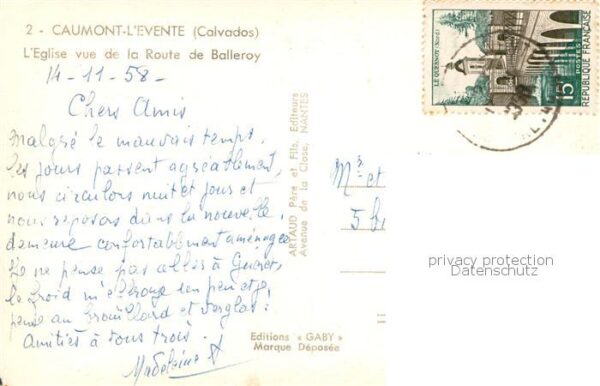 2 - CAUMONT-L'EVENTE (Calvados)
L'Eglise vue de la Route de Balleroy
14-11-58-
Chers Amis
Malgré le mauvais temps,
les jours passent agréablement,
nous circulons nuit et jours et
nous reposons dans la nouvelle
demeure confortablement aménagée
Je ne pense pas aller à Gueret,
le froid m'effraye un peu et je
pense au brouillard et verglas.
Amitiés à vous trois.
Madeleine
ARTAUD Père et Fils, Editeurs
Avenue de la Close, NANTES
Mr et
5 
Editions « GABY »
Marque Déposée
LE QUESNOY (Nord)
15F
POSTES
REPUBLIQUE FRANÇAISE
privacy protection
Datenschutz